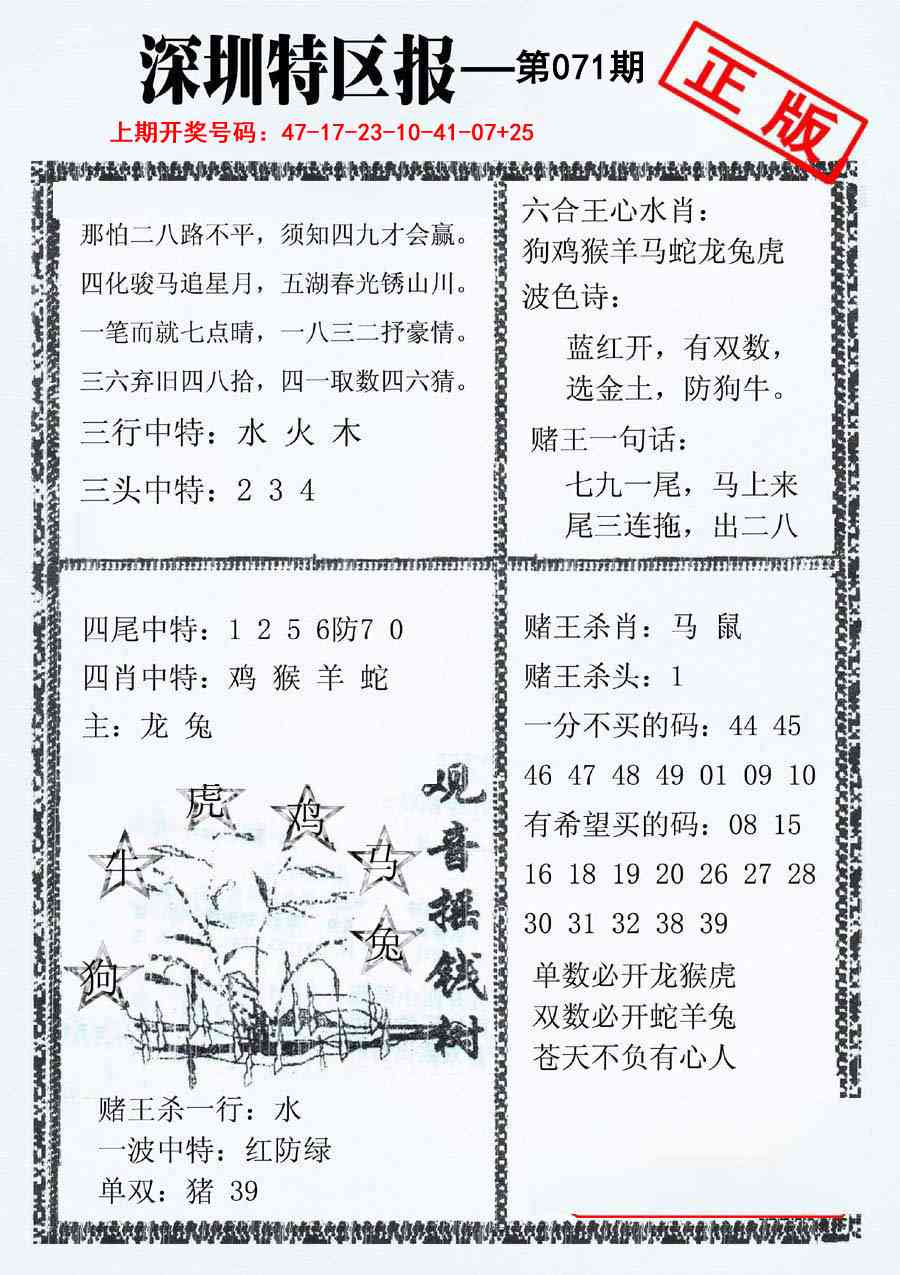 深圳特区报—第071期
正版
上期开奖号码：47-17-23-10-41-07+25
那怕二八路不平，须知四九才会赢。
四化骏马追星月，五湖春光锈山川。
一笔而就七点晴，一八三二抒豪情。
三六弃旧四八拾，四一取数四六猜。
三行中特：水 火 木
三头中特：2 3 4
六合王心水肖：
狗鸡猴羊马蛇龙兔虎
波色诗：
蓝红开，有双数，
选金土，防狗牛。
赌王一句话：
七九一尾，马上来
尾三连拖，出二八
四尾中特：1 2 5 6防7 0
四肖中特：鸡 猴 羊 蛇
主：龙 兔
虎
鸡
牛
马
兔
狗
观音摇钱树
赌王杀一行：水
一波中特：红防绿
单双：猪 39
赌王杀肖：马 鼠
赌王杀头：1
一分不买的码：44 45
46 47 48 49 01 09 10
有希望买的码：08 15
16 18 19 20 26 27 28
30 31 32 38 39
单数必开龙猴虎
双数必开蛇羊兔
苍天不负有心人